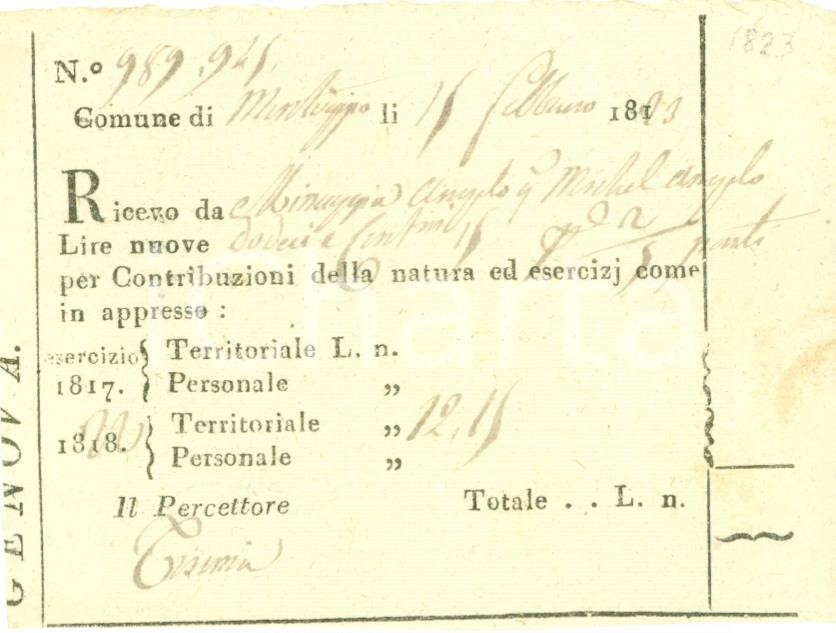 1823
N.º 989.941
Comune di li 15 febbraio 1823
Ricevo da Minaggia Angelo q Michel Angelo
Lire nuove dodeci e Centmi 15
per Contribuzioni della natura ed esercizj come
in appresso :
esercizio Territoriale L. n.
1817. Personale „
1818. Territoriale „ 12.15
Personale „
Il Percettore Totale . . L. n.
GENOVA.